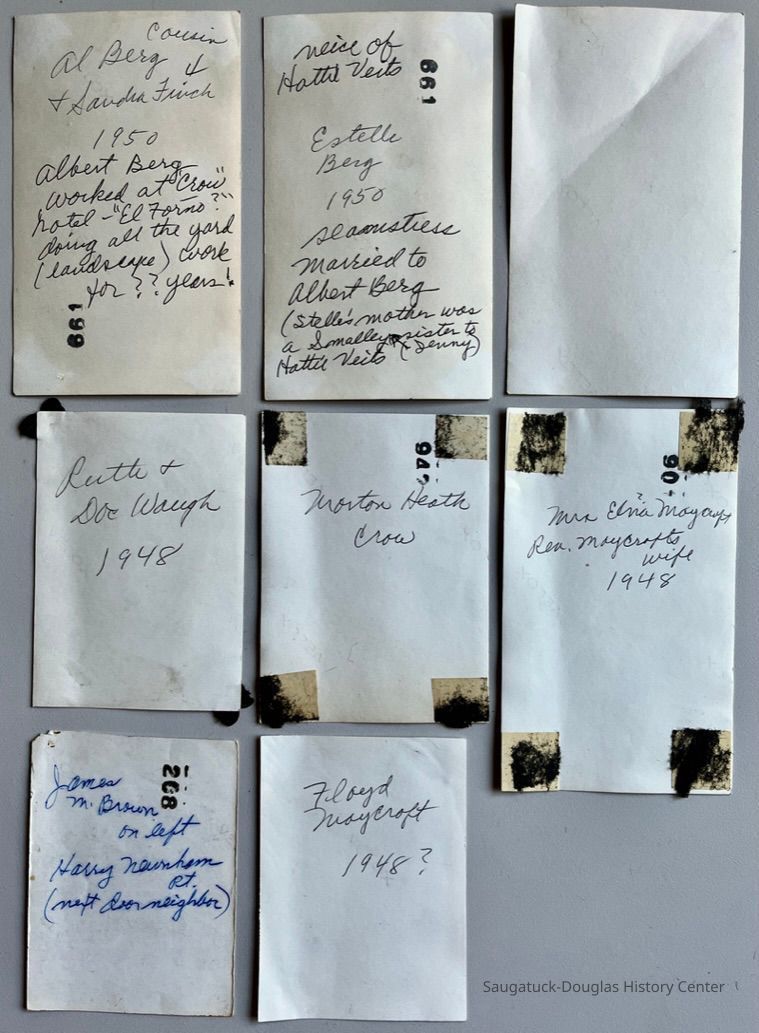 Cousin
Al Berg ↓
+ Sandra Finch
1950
Albert Berg
worked at "Crow"
hotel - "El Forno?"
doing all the yard
(landscape) work
for ?? years!
661
neice of
Hattie Veits
661
Estelle
Berg
1950
seamstress
married to
Albert Berg
(Stelle's mother was
a Smalley sister to
Hattie Veits (Jenny)
Ruth +
Doc Waugh
1948
94
Morton Heath
Crow
90
Mrs Edna Maycroft
Rev. Maycrofts
wife
1948
James
M. Brown
on left
268
Harry Newnham
rt.
(next door neighbor)
Floyd
Maycroft
1948?
Saugatuck-Douglas History Center